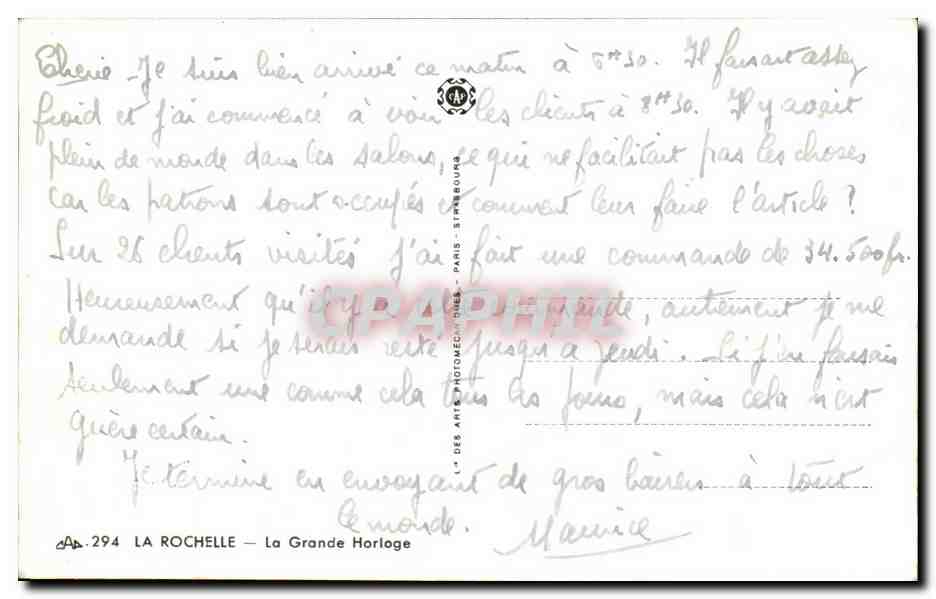 Chérie - Je suis bien arrivé ce matin à 6H30. Il faisait assez
froid et j'ai commencé à voir les clients à 8H30. Il y avait
plein de monde dans les salons, ce qui ne facilitait pas les choses
car les patrons sont occupés et comment leur faire l'article ?
Sur 26 clients visités j'ai fait une commande de 34.500fr.
Heureusement qu'il y a commande, autrement je me
demande si je serais resté jusqu'à jeudi. Si j'en faisais
seulement une comme cela tous les jours, mais cela n'est
guère certain.
Je termine en envoyant de gros baisers à tout
le monde. Maurice
CAP
Ie DES ARTS PHOTOMECANIQUES - PARIS - STRASBOURG
CPAPHIL
CAP. 294 LA ROCHELLE — La Grande Horloge